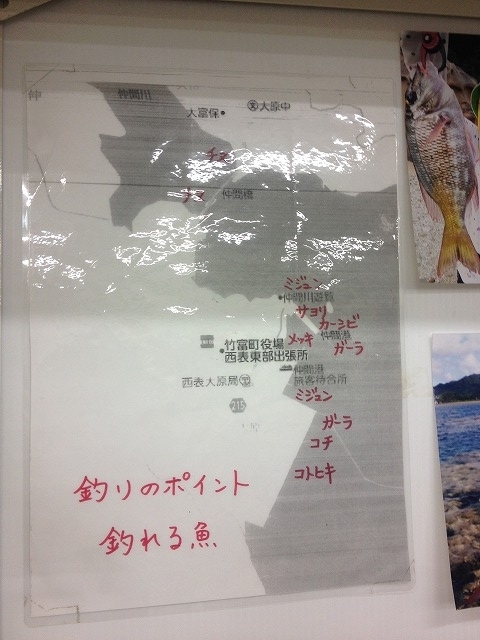 仲間川
大富保
文大原中
チヌ
チヌ
仲間橋
ミジュン
仲間川遊覧
サヨリ
カーシビ
メッキ
仲間港
ガーラ
竹富町役場
西表東部出張所
仲間港
旅客待合所
西表大原局
ミジュン
215
ガーラ
コチ
コトヒキ
釣りのポイント
釣れる魚